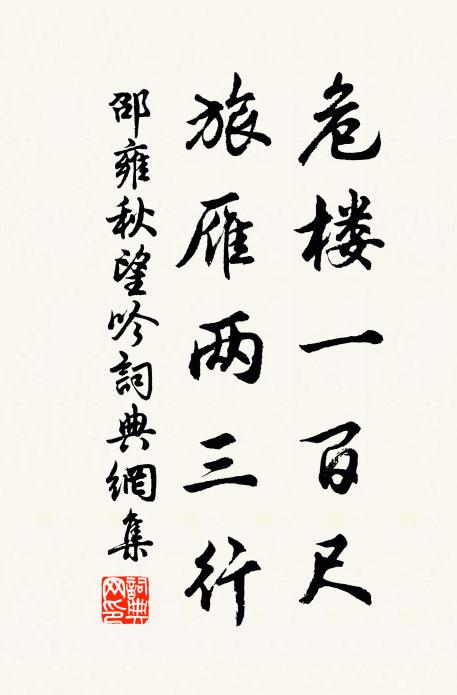 危楼一百尺
旅雁两三行
邵雍秋望吟詞典網集
詞典網印